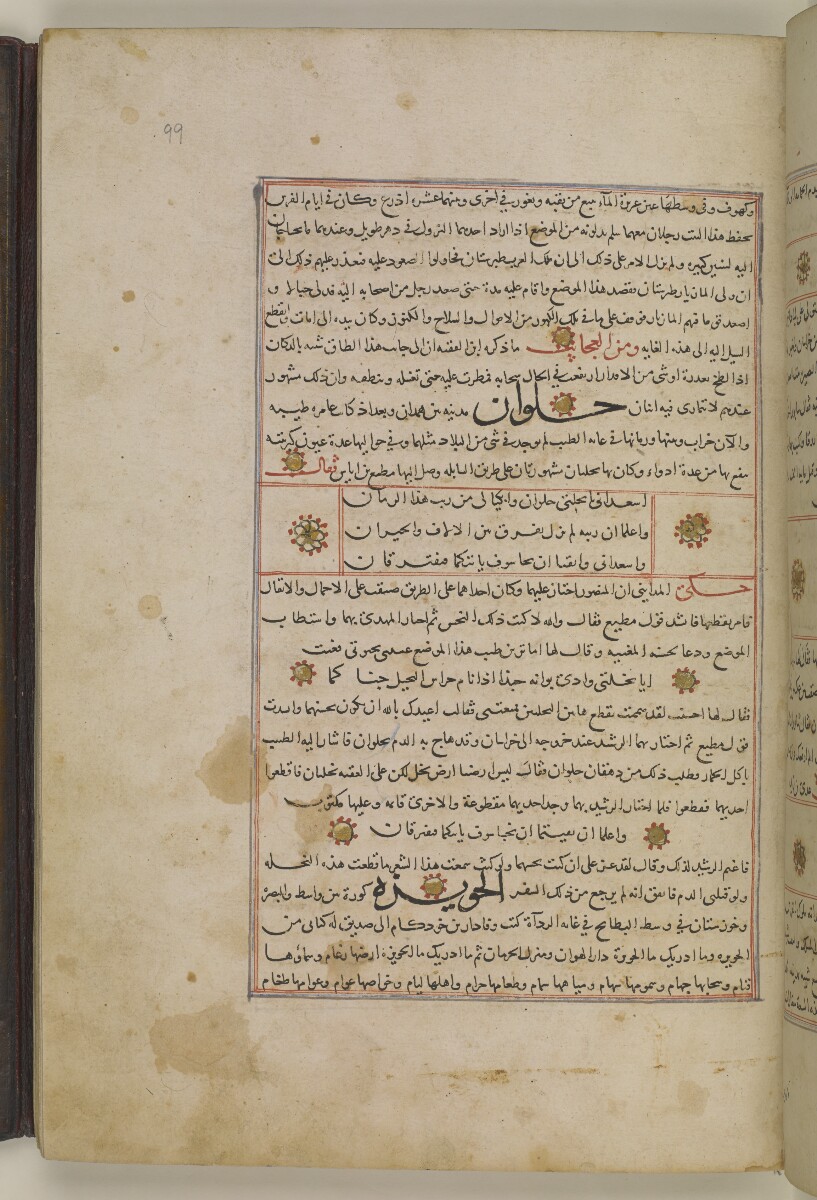 99
وكهوف وفى وسطها عين غزيرة الماء ينبع من ثقبه ويغور فى اخرى وبينهما عشرة اذرع وكان فى ايام الفرس
يحفظ هذا النقب رجلان معهما سلم يدلونه من الموضع اذا اراد احدهما النزول فى دهر طويل وعندهما ما يحتاجان
اليه لسنين كثيرة ولم يزل الامر على ذلك الى ان ملك العرب طبرستان فحاولوا الصعود عليه فتعذر عليهم ذلك الى
ان ولى المازيار طبرستان فقصد هذا الموضع واقام عليه مدة حتى صعد رجل من اصحابه اليه فدلى حبالا و
اصعد قوما فيهم المازيار فوقف على ما فى تلك الكهوف من الاموال والسلاح والكنوز وكان بيده الى ان مات وانقطع
السبيل اليه الى هذه الغايه ومن العجايب ما ذكره ابن الفقيه ان الى جانب هذا الطاق شبه بالدكان
اذا لطخ بعذرة او شى من الاقذار ارتفعت فى الحال سحابه فمطرت عليه حتى تغسله وتنظفه وان ذلك مشهور
عندهم لا يتمارى فيه اثنان حلوان مدينه بين همدان وبغداد كانت عامره طيبه
والآن خراب وتينها ورمانها فى غايه الطيب لم يوجد فى شى من البلاد مثلهما وفى حواليها عدة عيون كبريتيه
ينتفع بها من عدة ادواء وكان بها نخلتان مشهورتان على طريق السابله وصل اليها مطيع بن اياس فقال
اسعدانى يا نخلتى حلوان وابكيا لى من ريب هذا الزمان
واعلما ان ريبه لم يزل يفرق بين الالاف والجيران
واسعدانى وايقنا ان نحسا سوف ياتيكما فتفترقان
حكى المداينى ان المنصور اجتاز عليهما وكان احداهما على الطريق ضيقت على الاحمال والاثقال
فامر بقطعها فانشد قول مطيع فقال والله لا كنت ذلك النحس ثم اجتاز المهدى بهما واستطاب
الموضع ودعا بحسنه المغنيه وقال لها اما ترين طيب هذا الموضع غنينى بحيوتى فغنت
ايا نخلتى وادى بوانه حبذا اذا نام حراس النخيل جنا كما
فقال لها احسنت لقد هممت بقطع هاتين النخلتين فمنعتنى فقالت اعيذك بالله ان تكون نحسهما وانشدت
قول مطيع ثم اجتاز بهما الرشيد عند خروجه الى خراسان وقد هاج به الدم بحلوان فاشار اليه الطبيب
باكل الجمار وطلب ذلك من دهقان حلوان فقال ليس ارضنا ارض نخل لكن على العقبه نخلتان فاقطعوا
احديهما فقطعوا فلما اجتاز الرشيد بهما وجد احديهما مقطوعة والاخرى قايمه وعليها مكتوب
واعلما ان بقيتما ان نحسا سوف ياتيكما فتفترقان
فاغتم الرشيد لذلك وقال لقد عز على ان كنت نحسهما ولو كنت سمعت هذا الشعر ما قطعت هذه النخله
ولو قتلنى الدم فاتفق انه لم يرجع من ذلك السفر الحويزه كورة بين واسط والبصرة
وخوزستان فى وسط البطايح فى غايه الرداة كتب وفادار بن خودكام الى صديق له كتابى من
الحويزه وما ادريك ما الحويزة دار الهوان ومنزل الحرمان ثم ما ادريك ما الحويزة ارضها رغام وسماؤها
قتام وسحابها جهام وسمومها سهام ومياهها سمام وطعامها حرام واهلها ليام وخواصها عوام وعوامها طغام